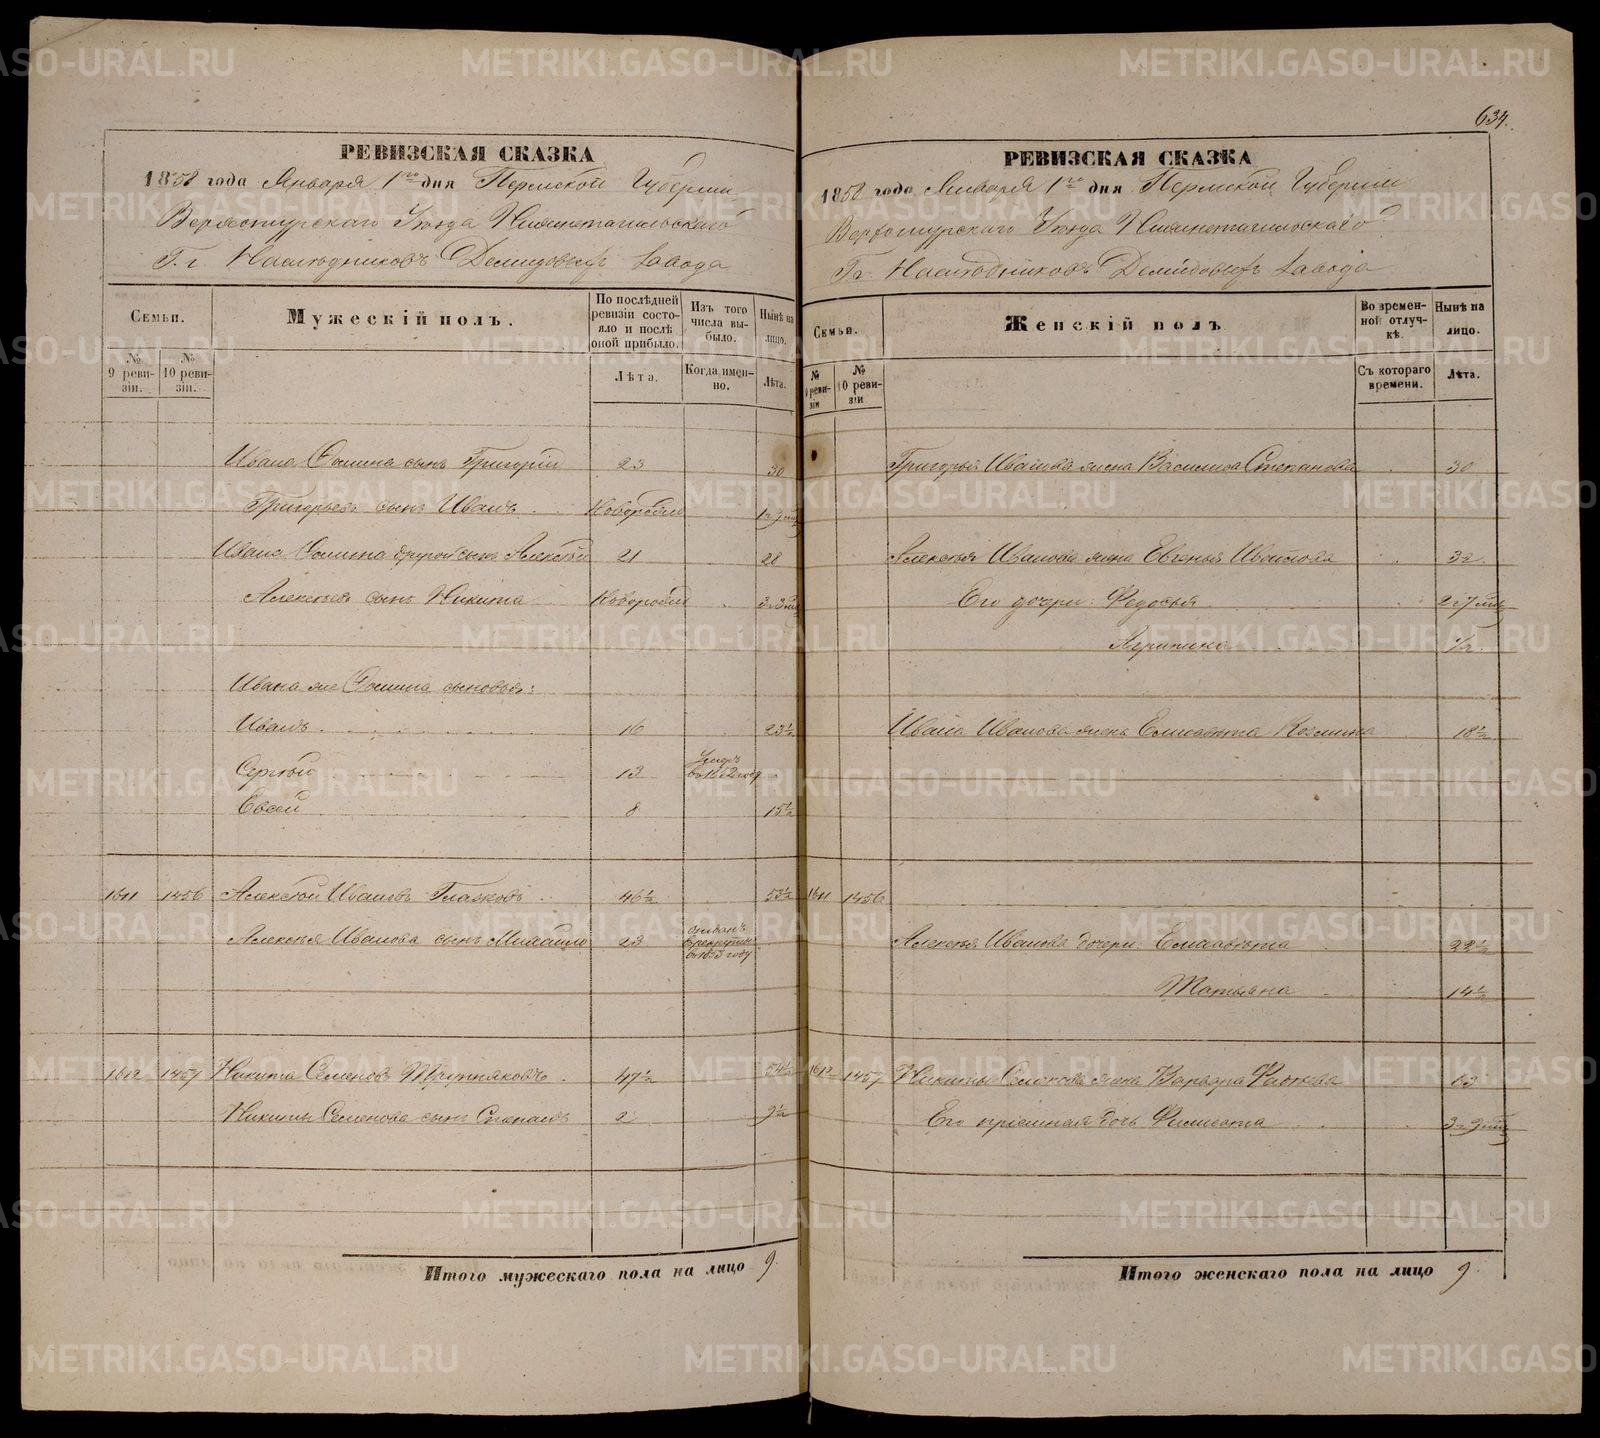 634.
РЕВИЗСКАЯ СКАЗКА
1858 года Января 1го дня Пермской Губернии
Верхотурскаго Уѣзда Нижнетагильскаго
Г.г. Наслѣдниковъ Демидовыхъ Завода
Семьи.
№ 9 ревизіи.
№ 10 ревизіи.
Мужескій полъ.
По послѣдней ревизіи состояло и послѣ оной прибыло.
Лѣта.
Изъ того числа выбыло.
Когда именно.
Нынѣ на лицо.
Лѣта.
Ивана сынъ Григорій 23 30
Григорьевъ сынъ Иванъ Новорожд 1 9
Ивана другой сынъ Алексѣй 21 28
Алексѣевъ сынъ Никита Новорожд 3 3
Ивана же сыновья:
Иванъ 16 23½
Сергѣй 13 Умеръ въ 1852 году
Евсей 8 15½
1611 1456 Алексѣй Ивановъ Глазковъ 46½ 53½
Алексѣя Иванова сынъ Михайло 23 отданъ въ рекруты въ 1853 году
1612 1457 Никита Семеновъ 47½ 54½
Никиты Семенова сынъ Степанъ 2 9½
Итого мужескаго пола на лицо 9.
РЕВИЗСКАЯ СКАЗКА
1858 года Января 1го дня Пермской Губерніи
Верхотурскаго Уѣзда Нижнетагильскаго
Гг. Наслѣдниковъ Демидовыхъ Завода
Семьи.
№ 9 ревизіи
№ 10 ревизіи
Женскій полъ
Во временной отлучкѣ.
Съ котораго времени.
Нынѣ на лицо.
Лѣта.
Григорья Иванова жена Василиса Степанова 30
Алексѣя Иванова жена Евгенья Иванова 32
Его дочери: Федосья 2 7
Агрипина ½
Ивана Иванова жена Елисавета Козмина 18½
1611 1456
Алексѣя Иванова дочери Елисавета 22½
Татьяна 14½
1612 1457 Никиты Семенова жена Варвара 53
Его пріемная дочь 3 9
Итого женскаго пола на лицо 9
METRIKI.GASO-URAL.RU